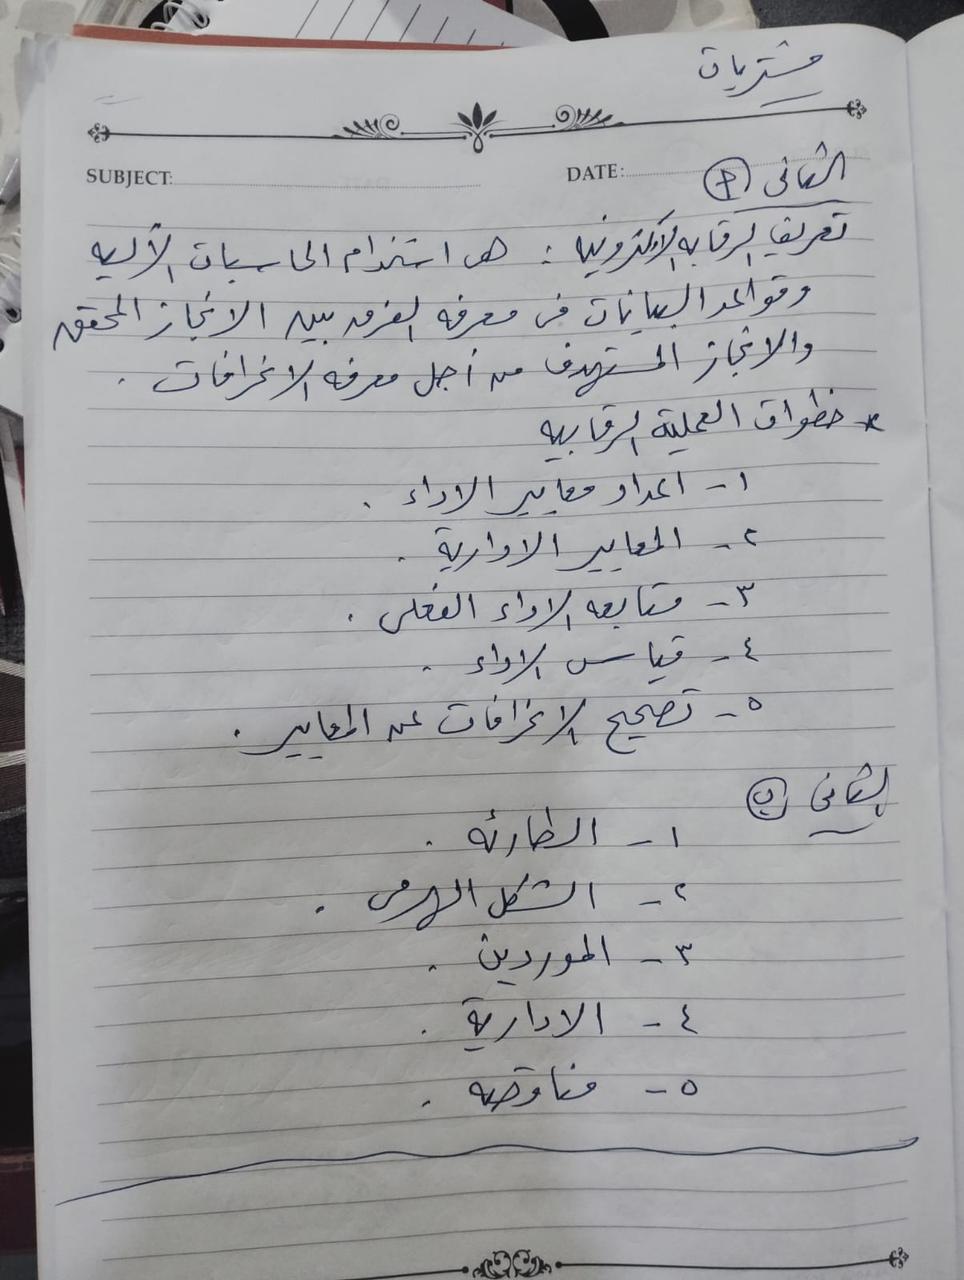 مشتريات
SUBJECT: DATE:
الثانى (أ)
تعريف الرقابه الالكترونيه : هى استخدام الحاسبات الآليه
وقواعد البيانات فى معرفه الفرق بين الانجاز المحقق
والانجاز المستهدف من أجل معرفه الانحرافات .
* خطوات العملية الرقابيه
١- اعداد معايير الاداء .
٢- المعايير الادارية .
٣- متابعه الاداء الفعلى .
٤- قياس الاداء .
٥- تصحيح الانحرافات عن المعايير .
الثانى (ب)
١- الطارئه .
٢- الشكل الهرمى .
٣- الموردين .
٤- الادارية .
٥- مناقصه .